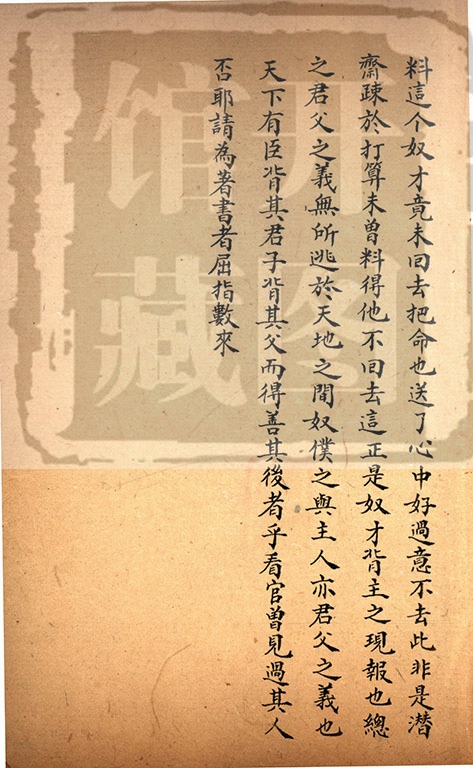 料這个奴才竟未回去把命也送了心中好過意不去此非是潜
齋疎於打算未曽料得他不回去這正是奴才背主之現報也總
之君父之義無所逃於天地之間奴僕之與主人亦君父之義也
天下有臣背其君子背其父而得善其後者乎看官曽見過其人
否耶請為著書者屈指數來
开图
馆藏